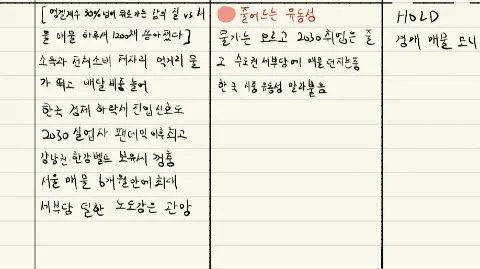 [ 엥겔계수 30% 넘어 뒤로가는 삶의 질 vs 서
울 매물 하루새 1200채 쏟아졌다 ]
소득과 전체소비 제자리 먹거리 물
가 뛰고 배달 배출 늘어
한국 경제 하락서 진입신호도
2030 실업자 팬데믹 이후 최고
강남권 한강벨트 보유세 껑충
서울 매물 6개월만에 최대
세부담 덜한 노도강은 관망
줄어드는 유동성
물가는 오르고 2030 취업은 줄
고 수도권 세부담에 매물 던지는중
한국 시중 유동성 말라붙음
HOLD
경매 매물 모니